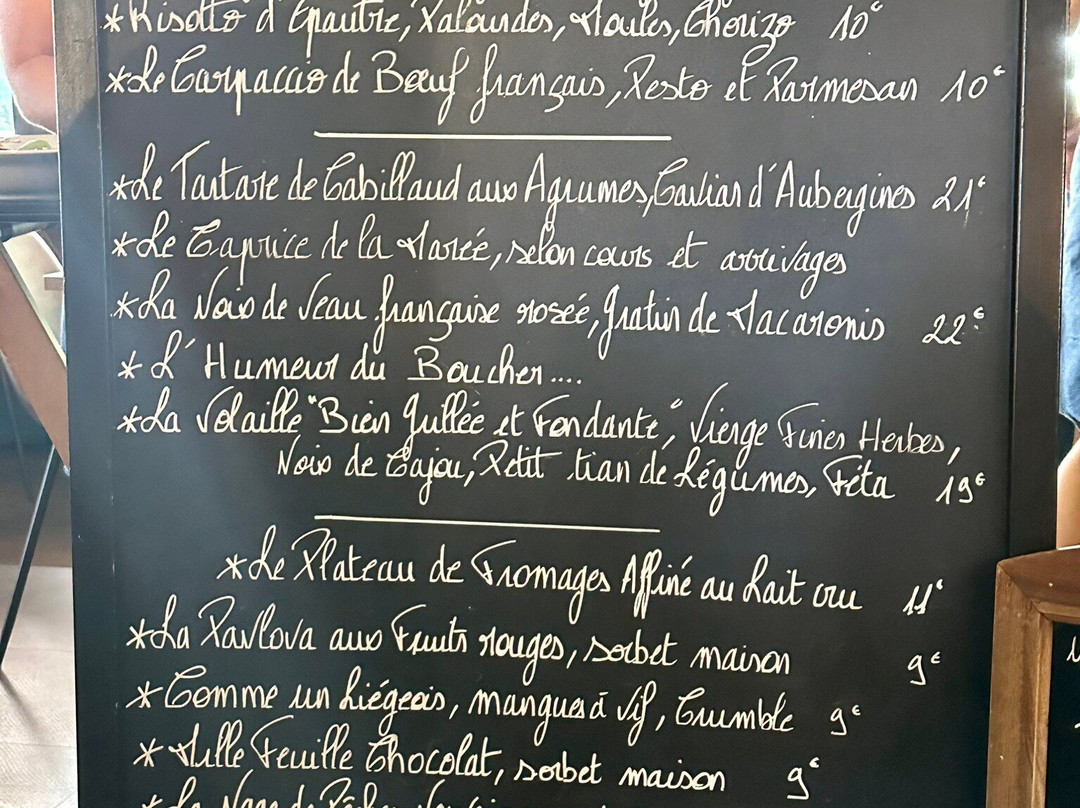 *Risotto d'Epautre, Palourdes, Moules, Chorizo 10€
*Le Carpaccio de Bœuf français, Pesto et Parmesan 10€
*Le Tartare de Cabillaud aux Agrumes, Caviar d'Aubergines 21€
*Le Caprice de la Marée, selon cours et arrivages
*La Noix de Veau française rosée, Gratin de Macaronis 22€
*L'Humeur du Boucher....
*La Volaille "Bien Grillée et Fondante", Vierge Fines Herbes,
Noix de Cajou, Petit tian de Légumes, Féta 19€
*Le Plateau de Fromages Affiné au Lait cru 11€
*La Pavlova aux Fruits rouges, sorbet maison 9€
*Comme un Liégeois, mangues à vif, Crumble 9€
*Mille Feuille Chocolat, sorbet maison 9€
*La